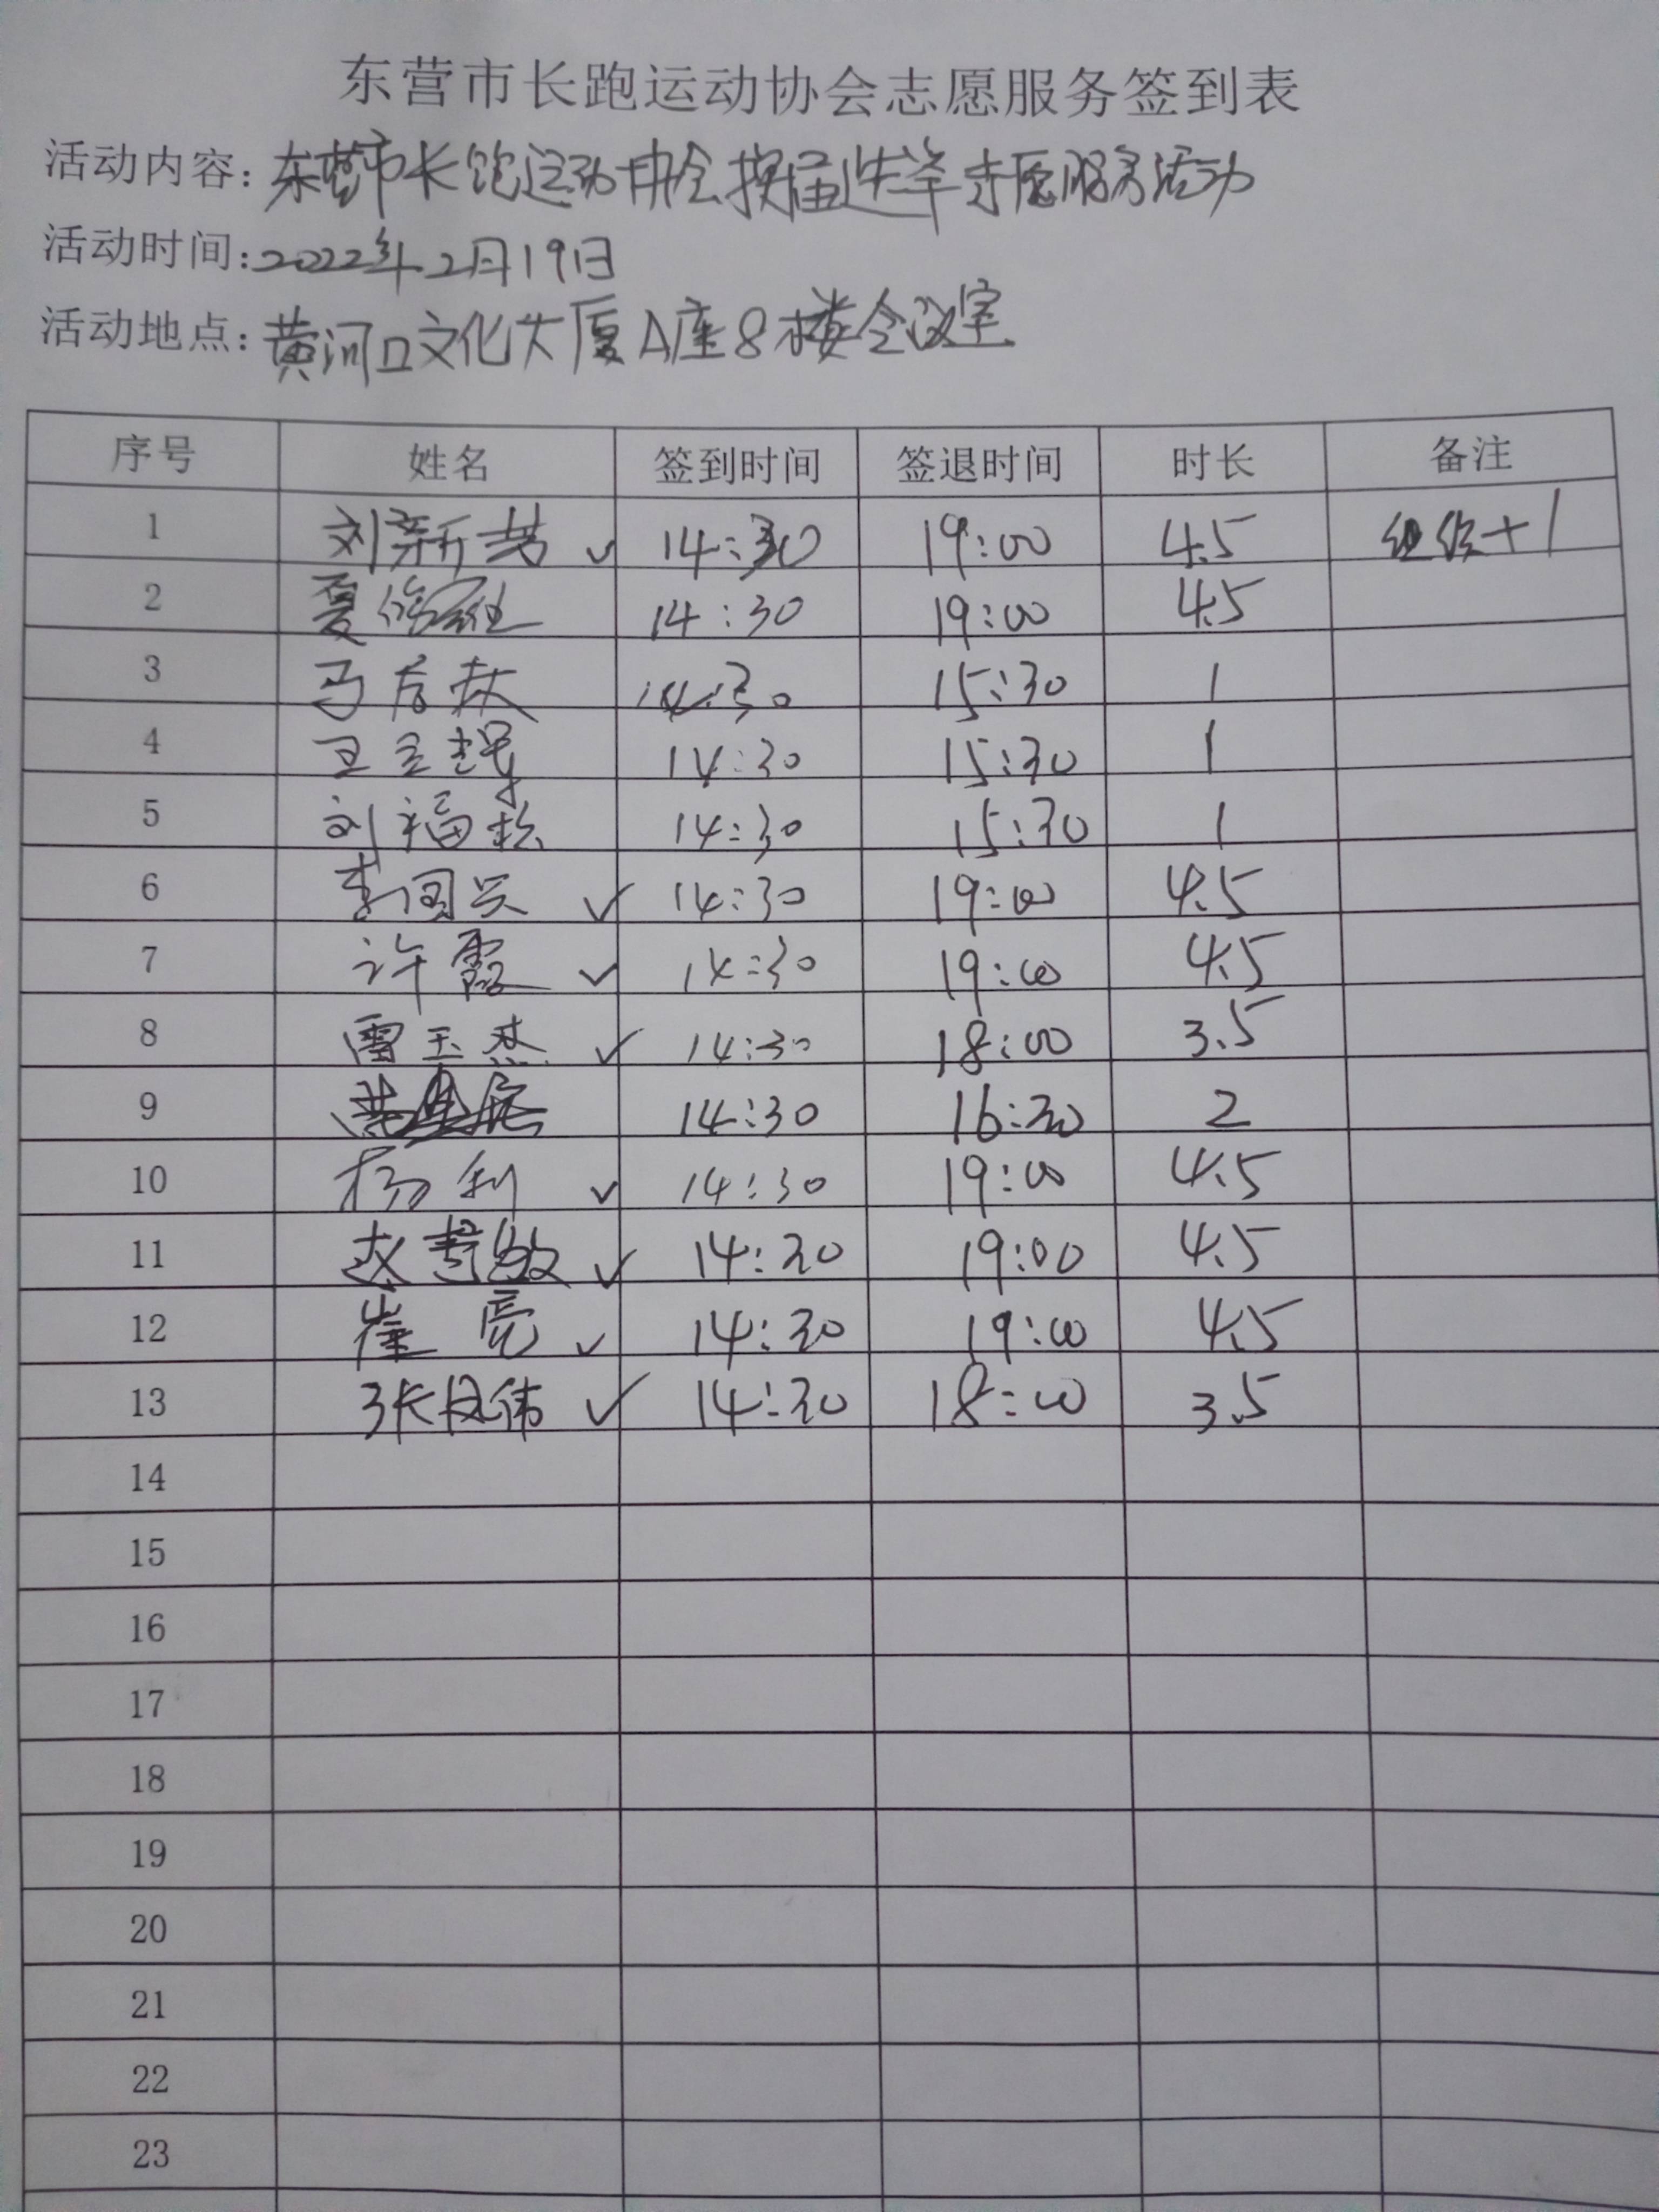 东营市长跑运动协会志愿服务签到表
活动内容：东营市长跑运动协会换届选举志愿服务活动
活动时间：2022年2月19日
活动地点：黄河口文化大厦A座8楼会议室
序号 姓名 签到时间 签退时间 时长 备注
1 刘新 ✓ 14:30 19:00 4.5 组织+1
2 夏 14:30 19:00 4.5
3 马 14:30 15:30 1
4 王 14:30 15:30 1
5 刘福 14:30 15:30 1
6 李国兴 ✓ 14:30 19:00 4.5
7 许霞 ✓ 14:30 19:00 4.5
8 雷玉杰 ✓ 14:30 18:00 3.5
9 14:30 16:30 2
10 杨利 ✓ 14:30 19:00 4.5
11 赵 敏 ✓ 14:30 19:00 4.5
12 崔亮 ✓ 14:30 19:00 4.5
13 张凤伟 ✓ 14:30 18:00 3.5
14
15
16
17
18
19
20
21
22
23